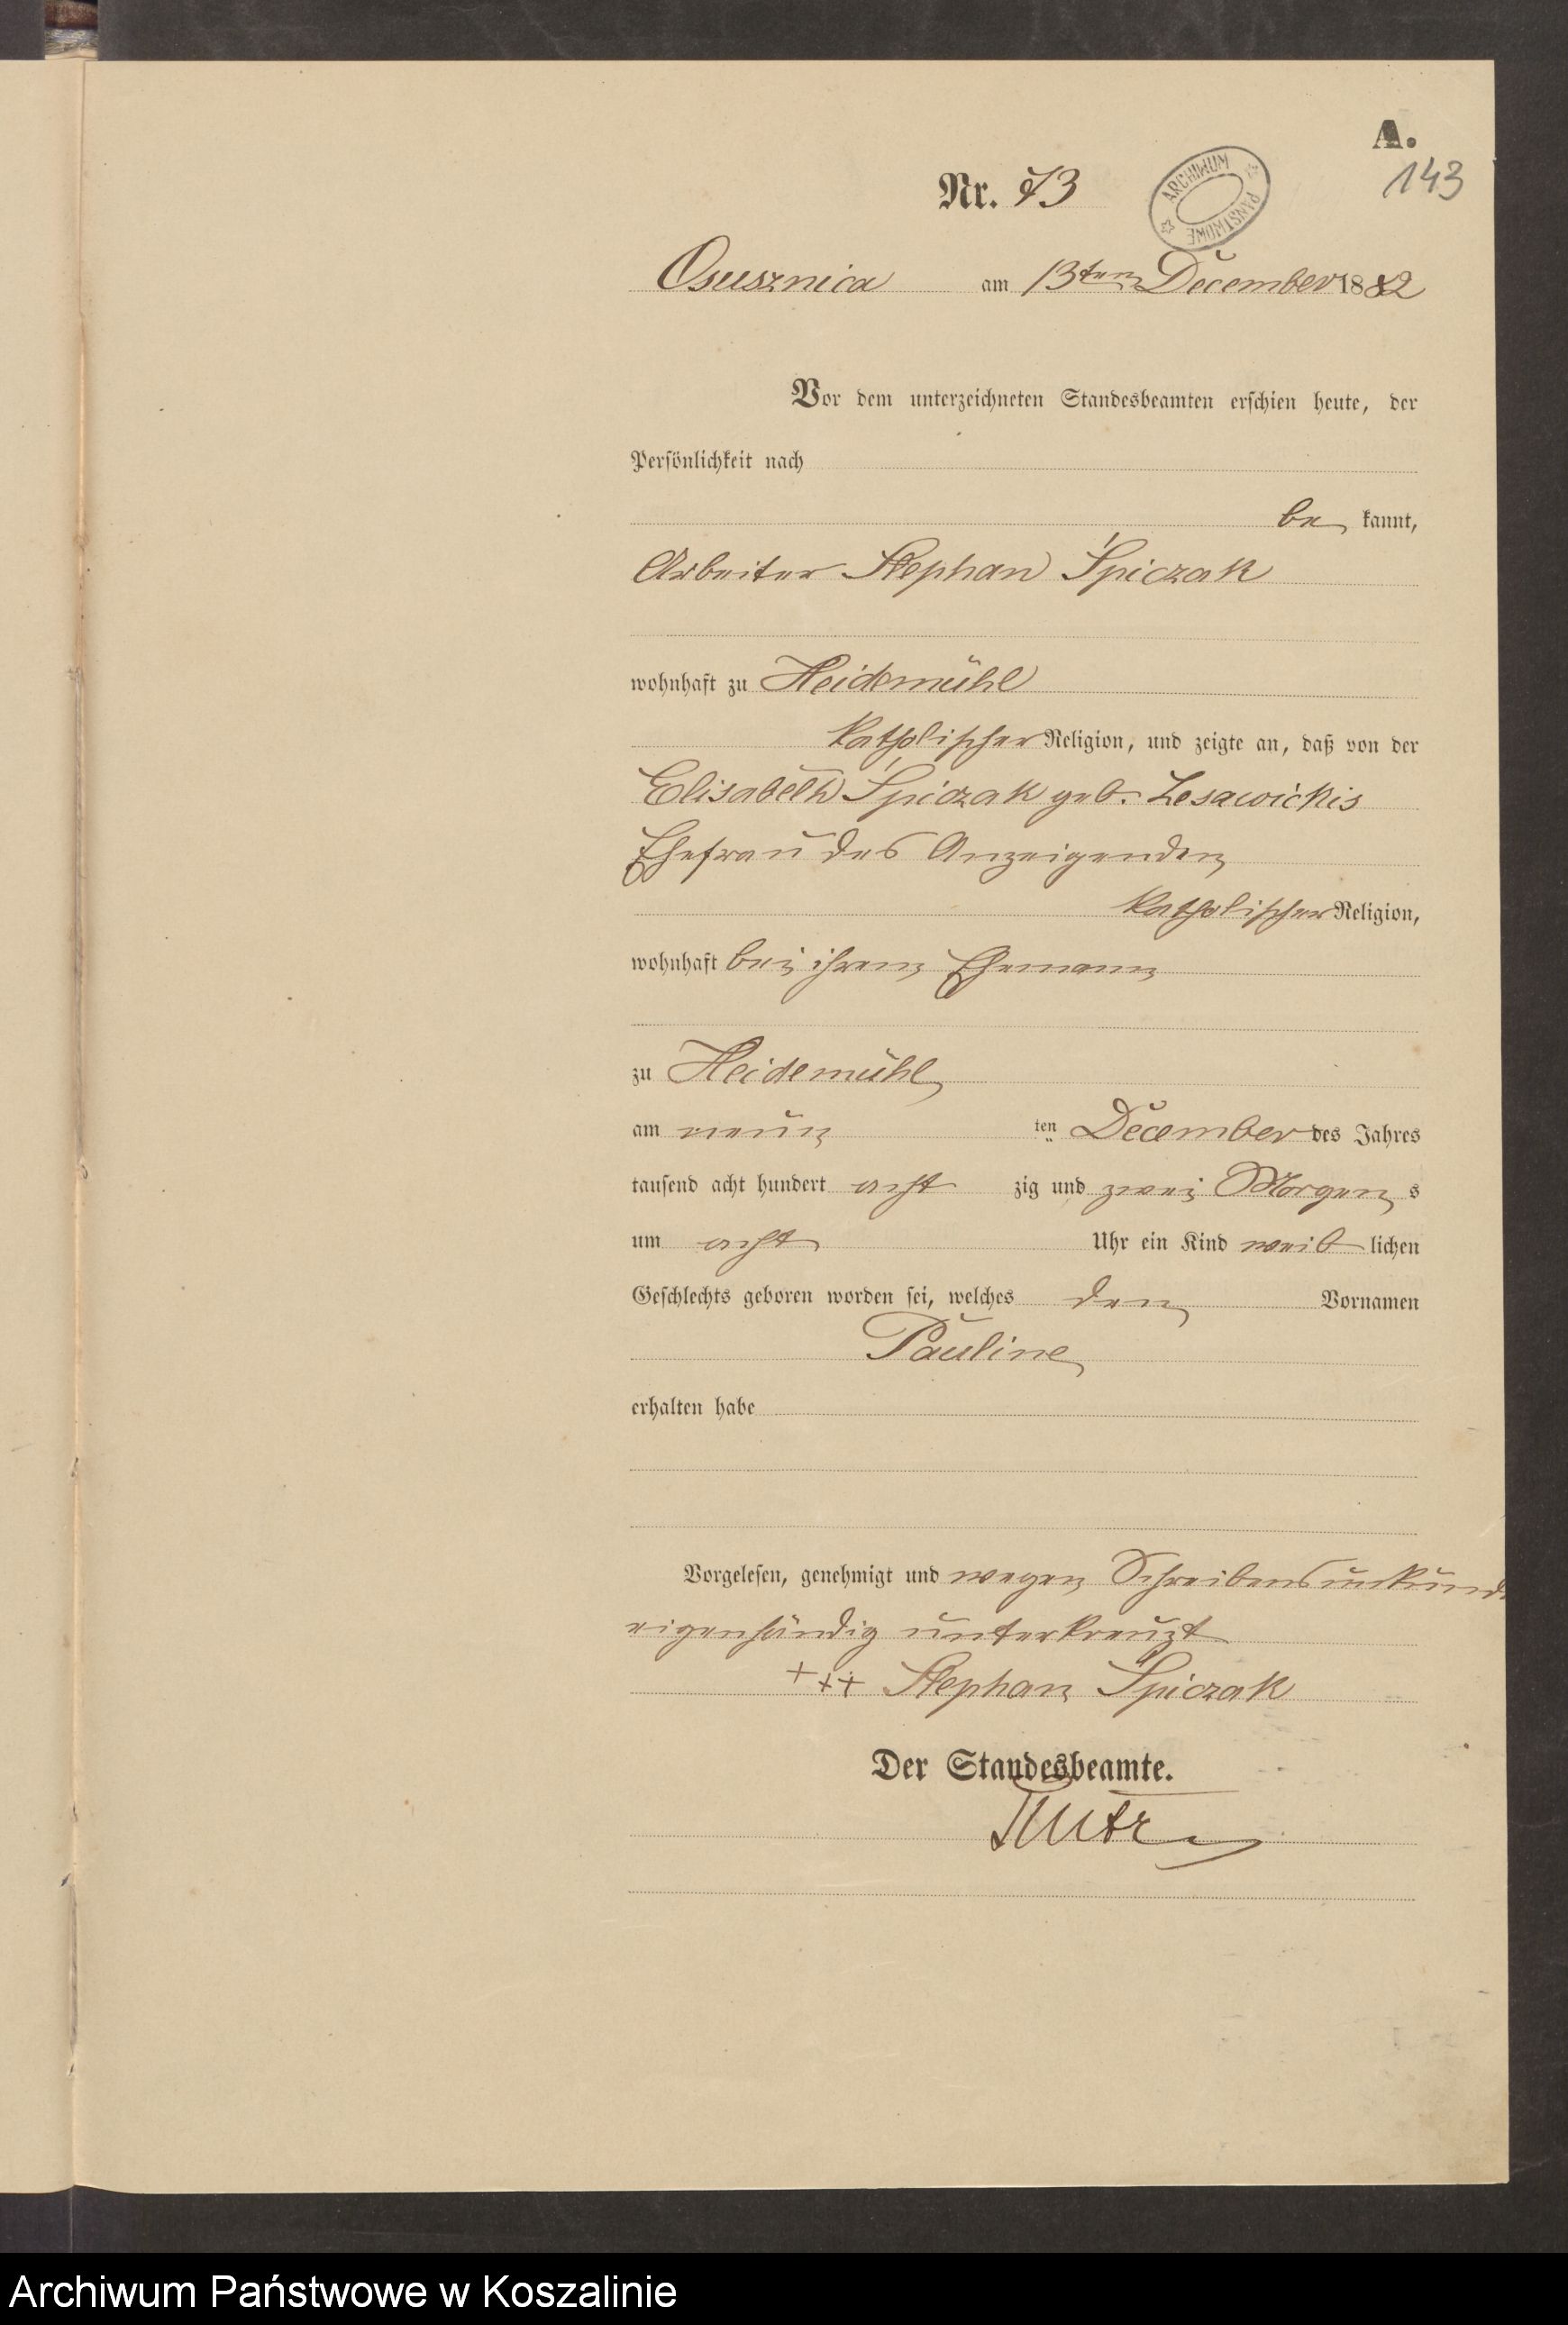 A.
143
Nr. 73
ARCHIWUM PAŃSTWOWE
Osusznica am 13ten December 1882
Vor dem unterzeichneten Standesbeamten erschien heute, der
Persönlichkeit nach
be kannt,
Arbeiter Stephan Śpiczak
wohnhaft zu Heidemühl
katholischer Religion, und zeigte an, daß von der
Elisabeth Śpiczak geb. Lesawickis
Ehefrau des Anzeigenden
katholischer Religion,
wohnhaft bei ihrem Ehemann
zu Heidemühl
am neun ten December des Jahres
tausend acht hundert acht zig und zwei Morgen s
um acht Uhr ein Kind weib lichen
Geschlechts geboren worden sei, welches den Vornamen
Pauline
erhalten habe
Vorgelesen, genehmigt und wegen Schreibensunkunde
eigenhändig unterkreuzt
+++ Stephan Śpiczak
Der Standesbeamte.
Archiwum Państwowe w Koszalinie